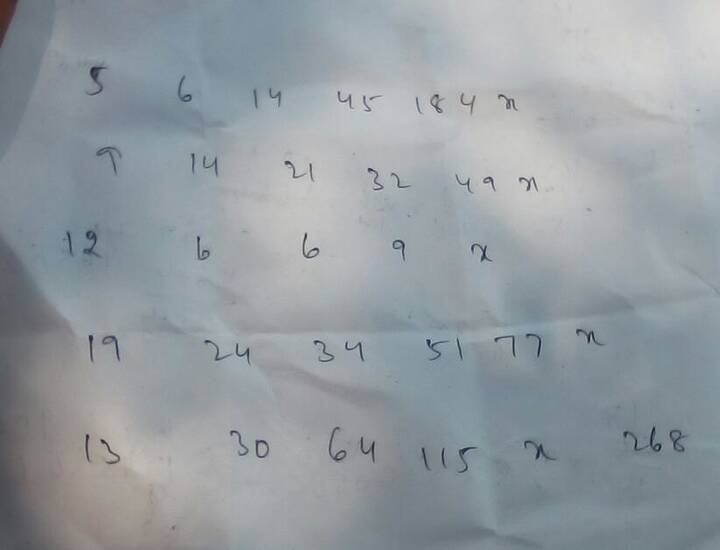 5 6 14 45 184 x
9 14 21 32 49 x
12 6 6 9 x
19 24 34 51 77 x
13 30 64 115 x 268